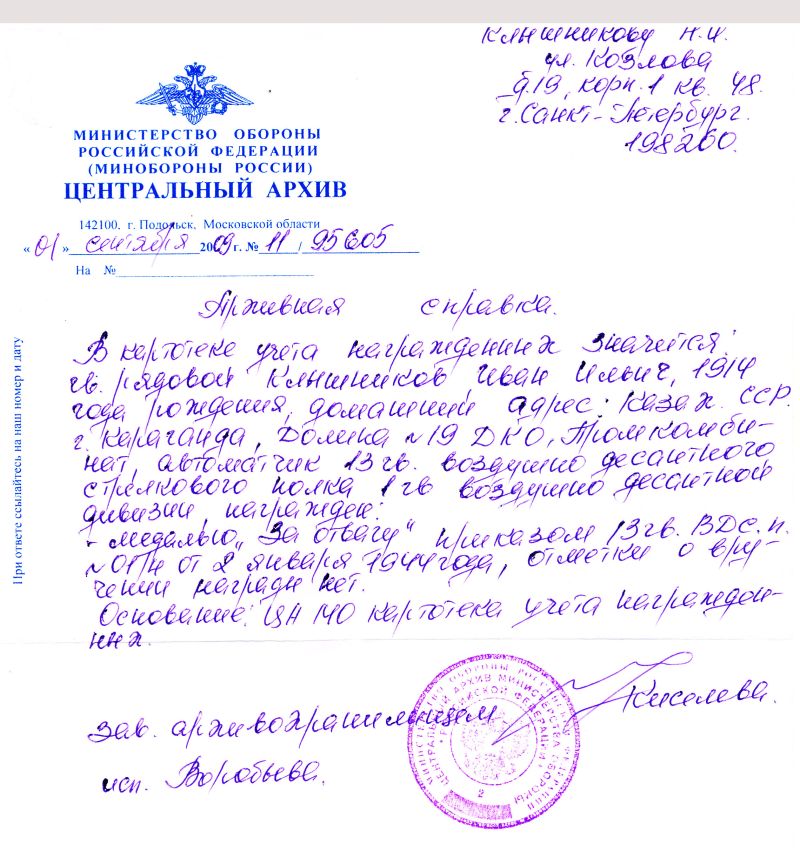 Клышникову Н.И.
ул. Козлова
д.19, корп.1 кв. 48.
г. Санкт-Петербург.
198260.
МИНИСТЕРСТВО ОБОРОНЫ
РОССИЙСКОЙ ФЕДЕРАЦИИ
(МИНОБОРОНЫ РОССИИ)
ЦЕНТРАЛЬНЫЙ АРХИВ
142100, г. Подольск, Московской области
«01» сентября 2009 г. № 11 / 95605
На №
При ответе ссылайтесь на наш номер и дату
Архивная справка.
В картотеке учета награжденных значится:
гв. рядовой Клышников Иван Ильич, 1914
года рождения, домашний адрес: Казах. ССР.
г. Караганда, Долинка №19 ДКО, Промкомби-
нат, автоматчик 13 гв. воздушно десантного
стрелкового полка 1 гв воздушно десантной
дивизии, награжден:
- медалью „За отвагу" приказом 13 гв. ВДс.п.
№ 01/н от 2 января 1944 года, отметки о вру-
чении награды нет.
Основание: ЦА МО картотека учета награжден-
ных.
Зав. архивохранилищем
Киселева.
исп. Воробьева.
МИНИСТЕРСТВО ОБОРОНЫ РОССИЙСКОЙ ФЕДЕРАЦИИ
ЦЕНТРАЛЬНЫЙ АРХИВ МИНИСТЕРСТВА ОБОРОНЫ
РОССИЙСКОЙ ФЕДЕРАЦИИ
2